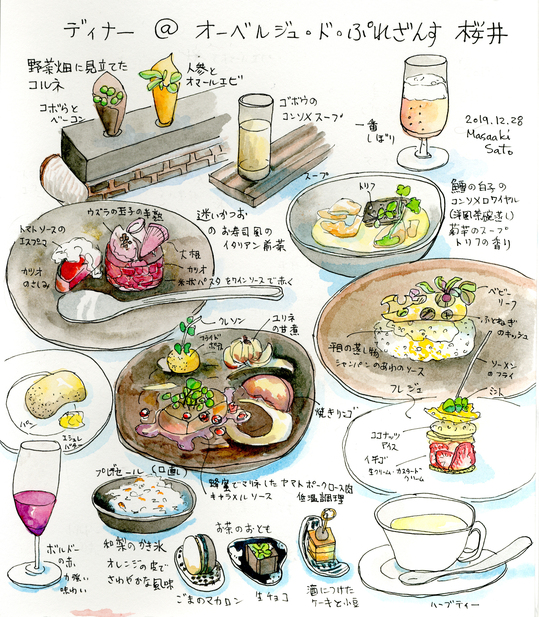 ディナー @ オーベルジュ・ド・ぷれざんす 桜井
野菜畑に見立てた
コルネ
人参と
オマールエビ
ゴボウと
ベーコン
ゴボウの
コンソメスープ
一番
しぼり
2019.12.28
Masaaki
Sato
スープ
トリフ
鱈の白子の
コンソメロワイヤル
(洋風茶碗蒸し)
菊芋のスープ
トリフの香り
ウズラの玉子の半熟
トマトソースの
エスプーマ
カツオ
のさしみ
迷いかつお
の お寿司風の
イタリアン前菜
大根
カツオ
米状パスタをワインソースで赤く
ベビー
リーフ
ふとねぎ
のキッシュ
平目の蒸し物
シャンパンのあわのソース
ソーメン
のフライ
クレソン
フライド
ポテト
ユリネ
の甘煮
焼きリンゴ
パン
エシュレ
バター
蜂蜜でマリネした ヤマトポークロース肉
キャラメルソース 低温調理
フレジェ
ミント
ココナッツ
アイス
イチゴ
生クリーム・カスタード
クリーム
プレデセール (口直し)
和梨のかき氷
オレンジの皮で
さわやかな風味
ボルドー
の赤
力強い
味わい
お茶のおとも
ごまのマカロン
生チョコ
酒につけた
ケーキと小豆
ハーブティー